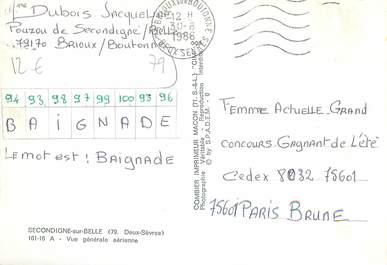 Mme Dubois Jacqueline
Pouzou de Secondigné/Belle
79170 Brioux/Boutonne
12€ 79
94 93 98 97 99 100 93 96
B A I G N A D E
Le mot est : Baignade
SECONDIGNE-sur-BELLE (79. Deux-Sèvres)
161-16 A - Vue générale aérienne
12 H
30-8
1986
COMBIER IMPRIMEUR MACON (71.S.-&-L.) "CIM"
Photographie Véritable - Reproduction Interdite
© by S.P.A.D.E.M.
Femme Actuelle Grand
concours Gagnant de l'été
Cedex 8032 75601
75601 Paris Brune